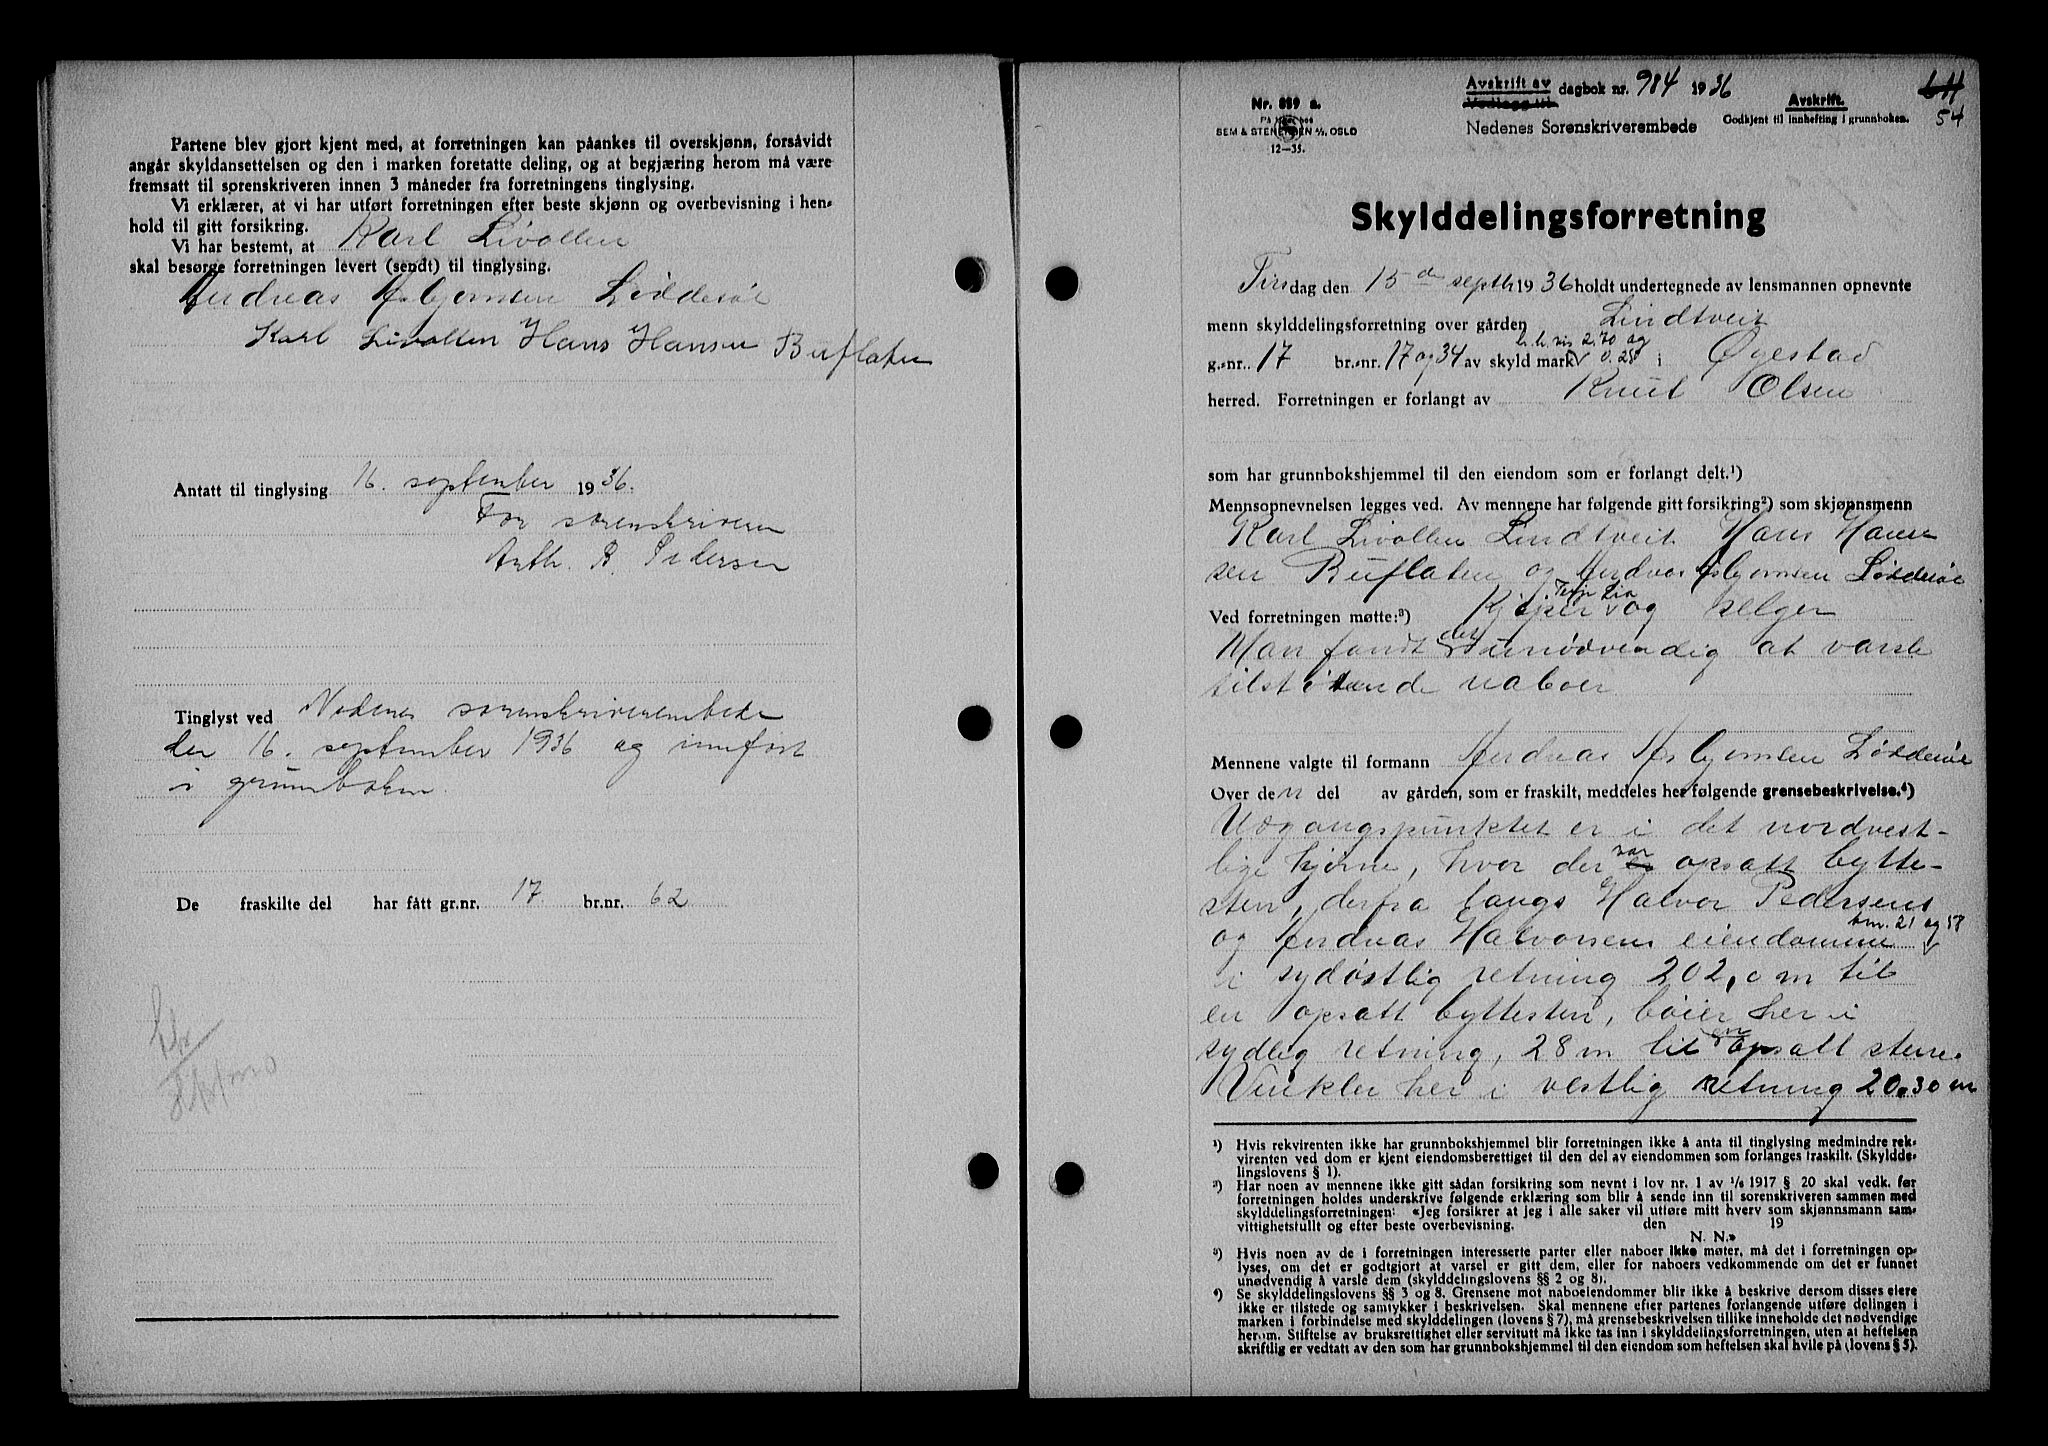 Partene blev gjort kjent med, at forretningen kan påankes til overskjønn, forsåvidt
angår skyldansettelsen og den i marken foretatte deling, og at begjæring herom må være
fremsatt til sorenskriveren innen 3 måneder fra forretningens tinglysing.
Vi erklærer, at vi har utført forretningen efter beste skjønn og overbevisning i hen-
hold til gitt forsikring.
Vi har bestemt, at Karl Livollen
skal besørge forretningen levert (sendt) til tinglysing.
Andreas Asbjørnsen Løddesøl
Karl Livollen Hans Hansen Buflaten
Antatt til tinglysing 16. september 1936.
For sorenskriveren
Arth. R. Pedersen
Tinglyst ved Nedenes sorenskriverembede
den 16. september 1936 og innført
i grunnboken.
De fraskilte del har fått gr.nr. 17 br.nr. 62
Nr. 889 a.
SEM & STENERSEN A/S, OSLO
12-35.
Avskrift av
Vedlagg til dagbok nr. 984 1936
Nedenes Sorenskriverembede
Avskrift.
Godkjent til innhefting i grunnboken.
54
Skylddelingsforretning
Tirsdag den 15de septb 1936 holdt undertegnede av lensmannen opnevnte
menn skylddelingsforretning over gården Lindtveit
h.h.vis 2.70 og
g.-nr. 17 br.-nr. 17 og 34 av skyld mark 0.28 i Øyestad
herred. Forretningen er forlangt av Knut Olsen
som har grunnbokshjemmel til den eiendom som er forlangt delt.¹)
Mennsopnevnelsen legges ved. Av mennene har følgende gitt forsikring²) som skjønnsmenn
Karl Livollen Lindtveit Hans Han-
sen Buflaten og Andreas Asbjørnsen Løddesøl
Terje Lia
Ved forretningen møtte:³) Kjøper og selger
Man fandt det unødvendig at varsle
tilstøtende naboer
Mennene valgte til formann Andreas Asbjørnsen Løddesøl
Over den del av gården, som er fraskilt, meddeles her følgende grensebeskrivelse.⁴)
Utgangspunktet er i det nordvest-
lige hjørne, hvor der var opsatt bytte-
sten, derfra langs Halvor Pedersens
og Andreas Halvorsens eiendomme bnr. 21 og 58
i sydøstlig retning 202,0 m til
en opsatt byttesten, bøier her i
sydlig retning, 28 m til en opsatt stene.
Vinkler her i vestlig retning 20.30 m
¹) Hvis rekvirenten ikke har grunnbokshjemmel blir forretningen ikke å anta til tinglysing medmindre rek-
virenten ved dom er kjent eiendomsberettiget til den del av eiendommen som forlanges fraskilt. (Skyldde-
lingslovens § 1).
²) Har noen av mennene ikke gitt sådan forsikring som nevnt i lov nr. 1 av 1/6 1917 § 20 skal vedk. før
forretningen holdes underskrive følgende erklæring som blir å sende inn til sorenskriveren sammen med
skylddelingsforretningen: «Jeg forsikrer at jeg i alle saker vil utføre mitt hverv som skjønnsmann sam-
vittighetsfullt og efter beste overbevisning. den 19
N. N.»
³) Hvis noen av de i forretningen interesserte parter eller naboer ikke møter, må det i forretningen op-
lyses, om det er godtgjort at varsel er gitt dem, eller for naboers vedkommende om det er funnet
unødvendig å varsle dem (skylddelingslovens §§ 2 og 8).
⁴) Se skylddelingslovens §§ 3 og 8. Grensene mot naboeiendommer blir ikke å beskrive dersom disses eiere
ikke er tilstede og samtykker i beskrivelsen. Skal mennene efter partenes forlangende utføre delingen i
marken i forbindelse med skylddelingen (lovens § 7), må grensebeskrivelsen tillike inneholde det nødvendige
herom. Stiftelse av bruksrettighet eller servitutt må ikke tas inn i skylddelingsforretningen, uten at heftelsen
skriftlig er vedtatt av den som har grunnbokshjemmel til den eiendom som heftelsen skal hvile på (lovens § 5).